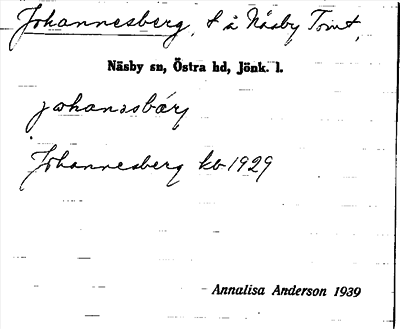 Johannesberg, t å Näsby Tomt,
Näsby sn, Östra hd, Jönk. l.
johanəsbärj
Johannesberg kb 1929
Annalisa Anderson 1939